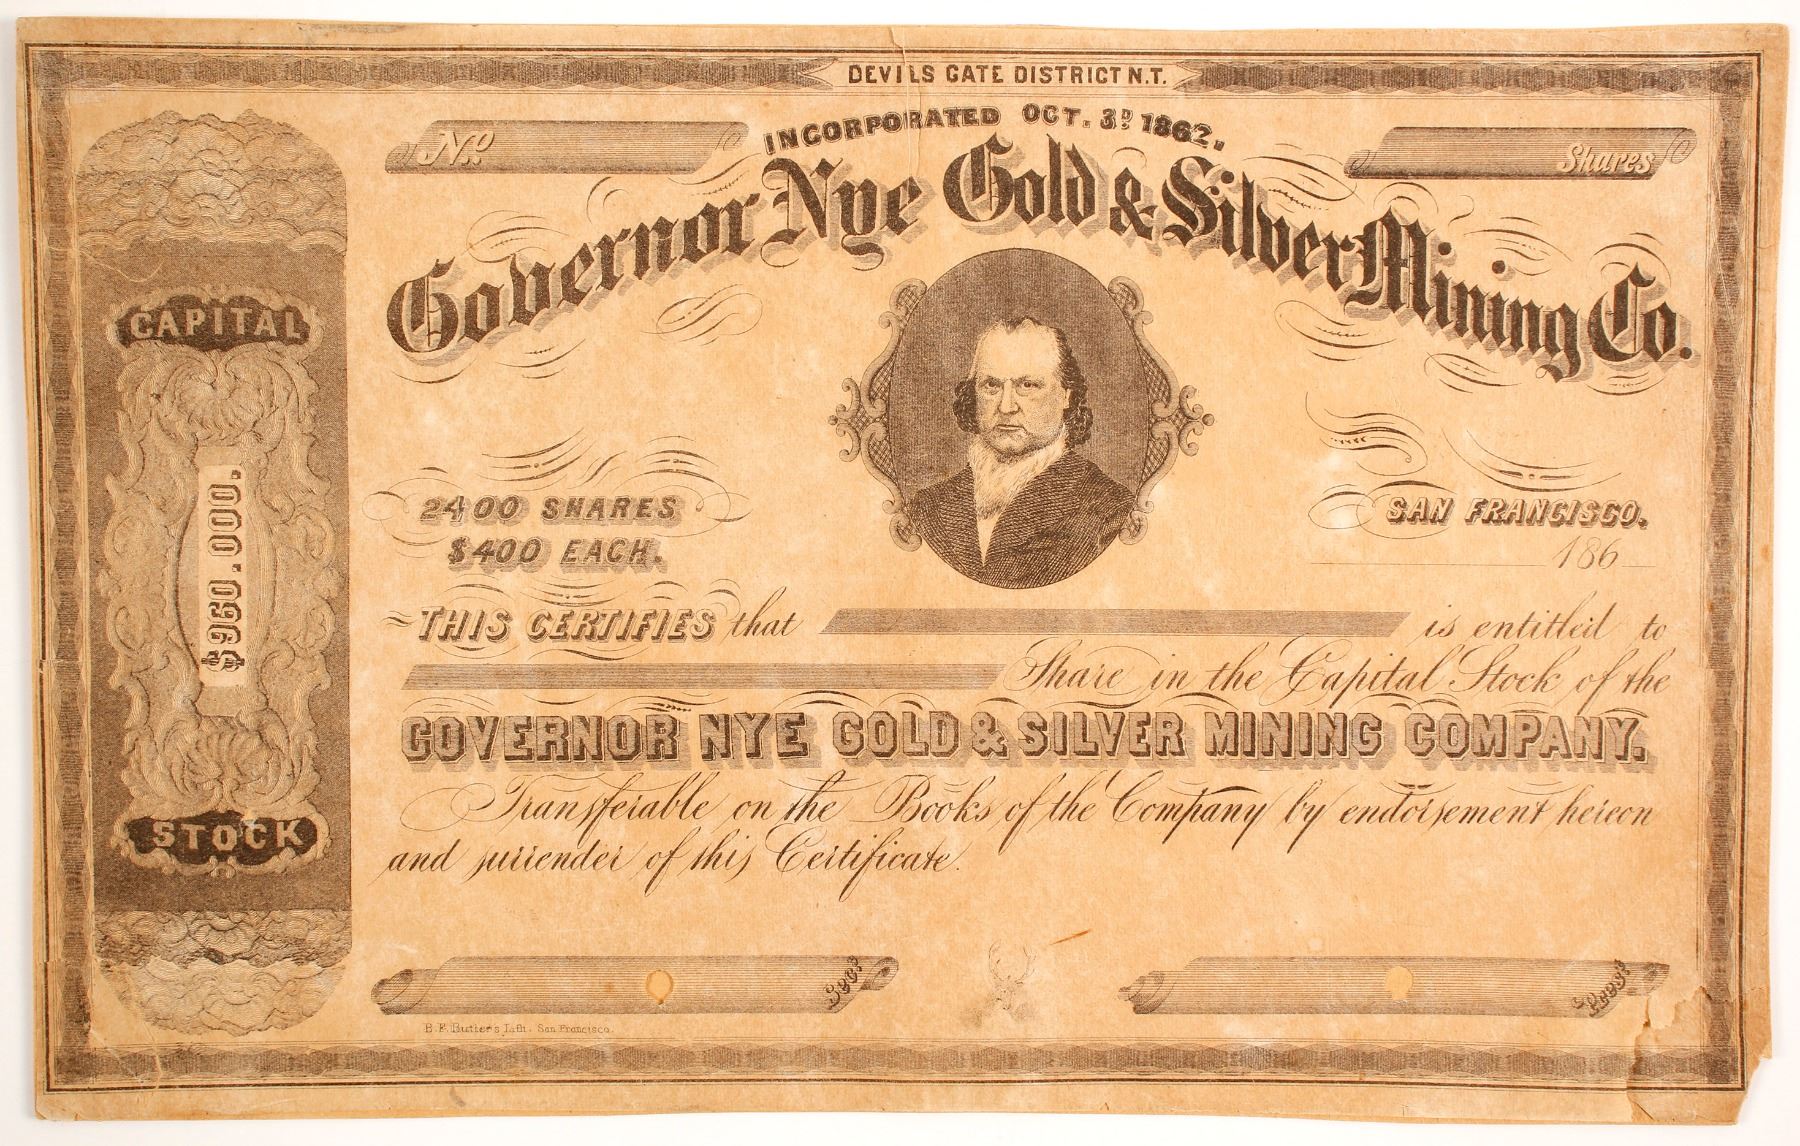 DEVILS GATE DISTRICT N.T.
INCORPORATED OCT. 3D 1862.
No.
Shares
Governor Nye Gold & Silver Mining Co.
CAPITAL
$960.000.
STOCK
2400 SHARES
$400 EACH.
SAN FRANCISCO.
186
THIS CERTIFIES that is entitled to
Share in the Capital Stock of the
GOVERNOR NYE GOLD & SILVER MINING COMPANY.
Transferable on the Books of the Company by endorsement hereon
and surrender of this Certificate.
Secy
Prest
B.F. Butler's Lith. San Francisco.